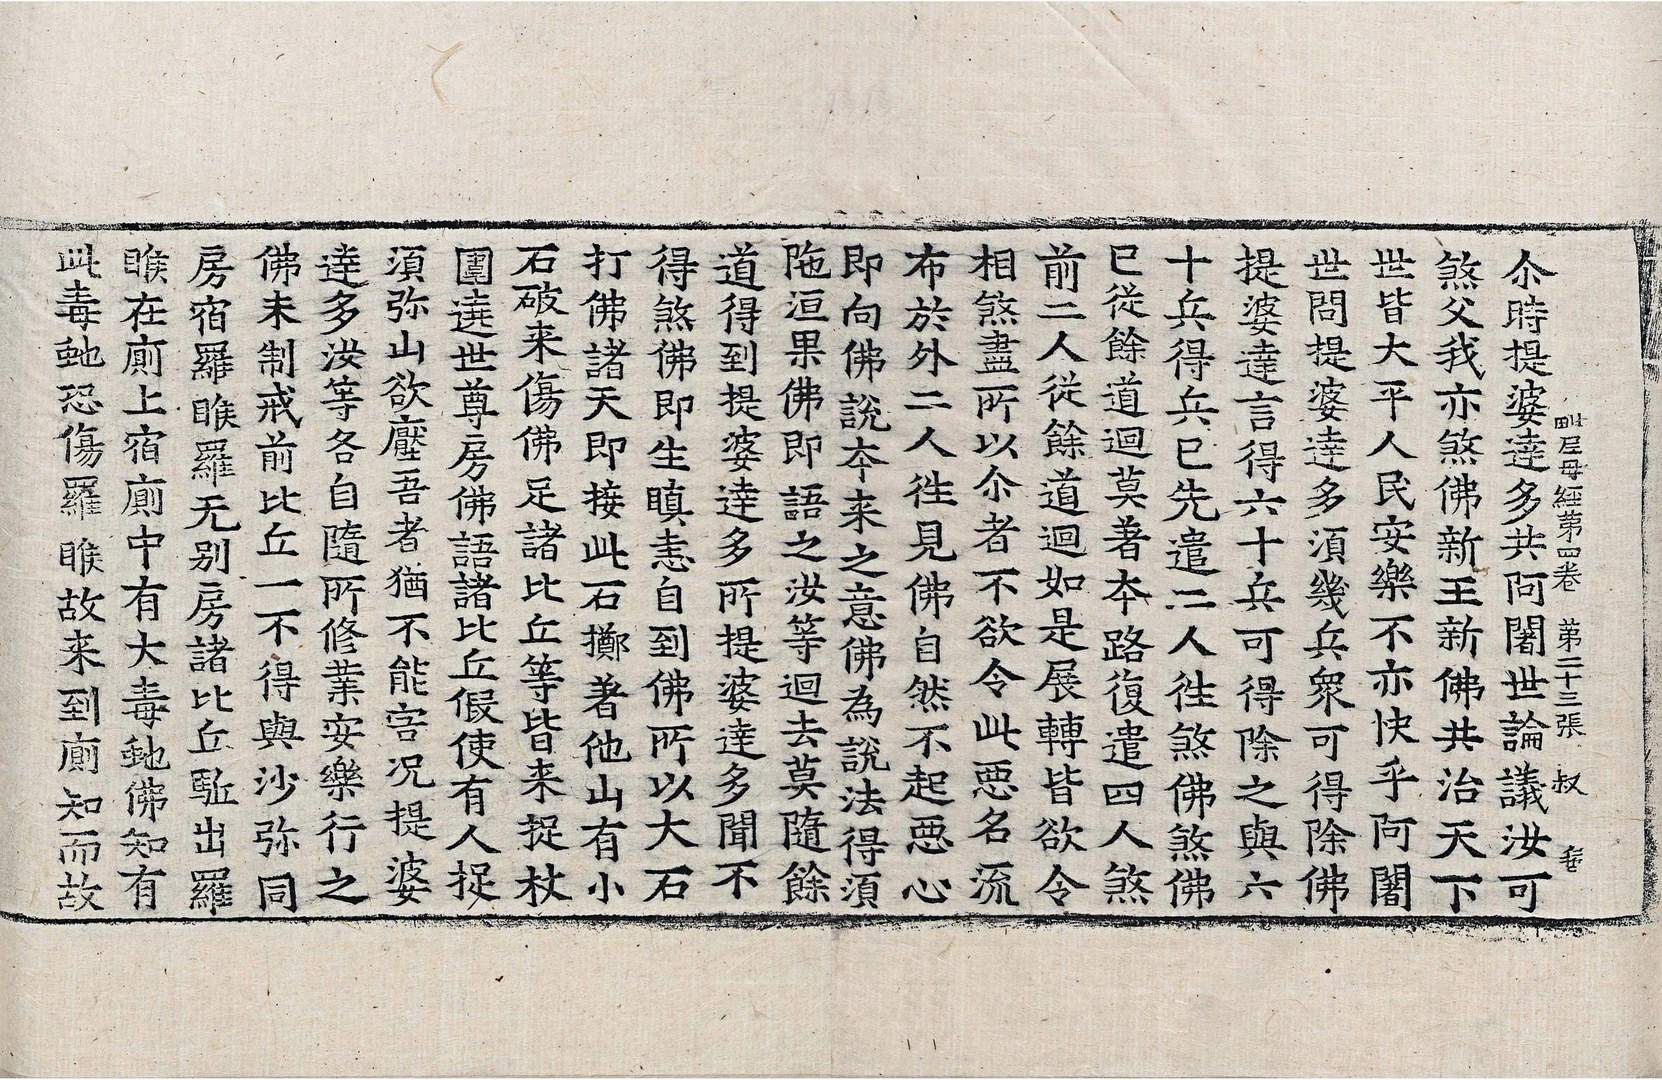 毗尼母經第四卷 第二十三張 叔
尒時提婆達多共阿闍世論議汝可
煞父我亦煞佛新王新佛共治天下
世皆大平人民安樂不亦快乎阿闍
世問提婆達多須幾兵衆可得除佛
提婆達言得六十兵可得除之與六
十兵得兵已先遣二人往煞佛煞佛
已從餘道迴莫著本路復遣四人煞
前二人從餘道迴如是展轉皆欲令
相煞盡所以尒者不欲令此惡名流
布於外二人往見佛自然不起惡心
即向佛說本来之意佛為說法得須
陁洹果佛即語之汝等迴去莫隨餘
道得到提婆達多所提婆達多聞不
得煞佛即生瞋恚自到佛所以大石
打佛諸天即接此石擲著他山有小
石破来傷佛足諸比丘等皆来捉杖
圍遶世尊房佛語諸比丘假使有人捉
須弥山欲壓吾者猶不能害况提婆
達多汝等各自隨所修業安樂行之
佛未制戒前比丘一不得與沙弥同
房宿羅睺羅无别房諸比丘駈出羅
睺在廁上宿廁中有大毒虵佛知有
此毒虵恐傷羅睺故来到廁知而故